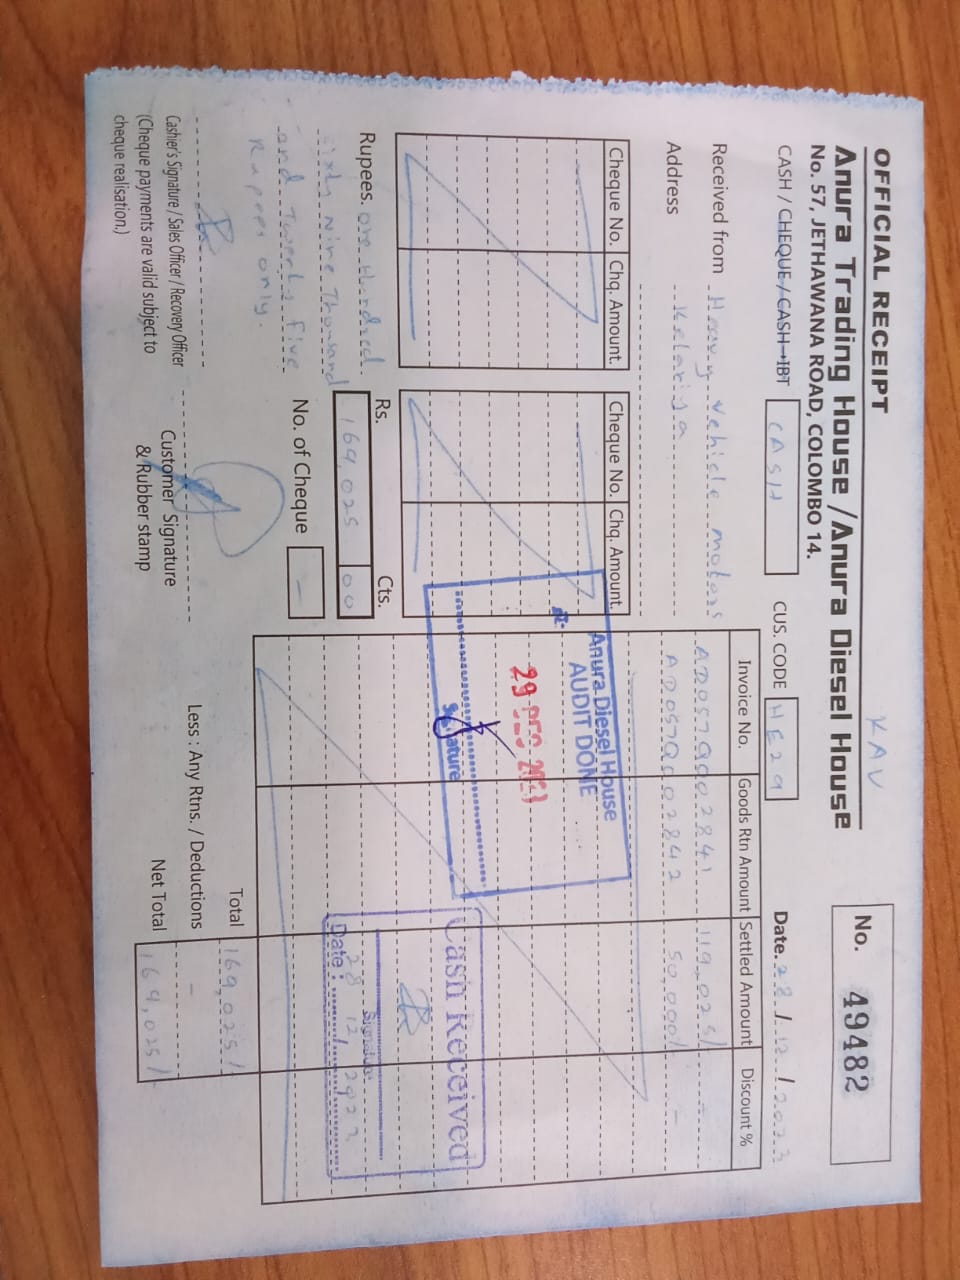 OFFICIAL RECEIPT
KAV
No. 49482
Anura Trading House / Anura Diesel House
No. 57, JETHAWANA ROAD, COLOMBO 14.
CASH / CHEQUE / CASH IBT CASH CUS. CODE HE29 Date. 28 / 12 / 2023
Received from Heavy vehicle motors
Address Kelaniya
Invoice No. Goods Rtn Amount Settled Amount Discount %
AD057Q002841 119,025/ -
AD057Q002842 50,000/ -
Cheque No. Chq. Amount. Cheque No. Chq. Amount.
Anura Diesel House
AUDIT DONE
29 DEC 2023
Signature
Cash Received
Signature
Date : 28 12/
Rupees. one Hundred
sixty Nine Thousand
and Twenty five
Rupees only.
Rs. Cts.
169,025 00
No. of Cheque -
Total 169,025/
Less : Any Rtns. / Deductions -
Net Total 169,025/
Cashier's Signature / Sales Officer / Recovery Officer
(Cheque payments are valid subject to
cheque realisation.)
Customer Signature
& Rubber stamp